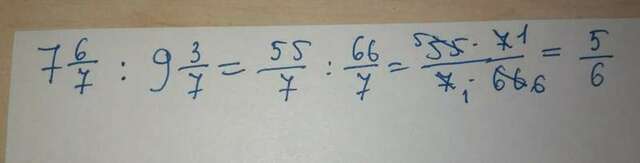 7 6/7 : 9 3/7 = 55/7 : 66/7 = 5 55 · 7 1 / 7 1 · 66 6 = 5/6